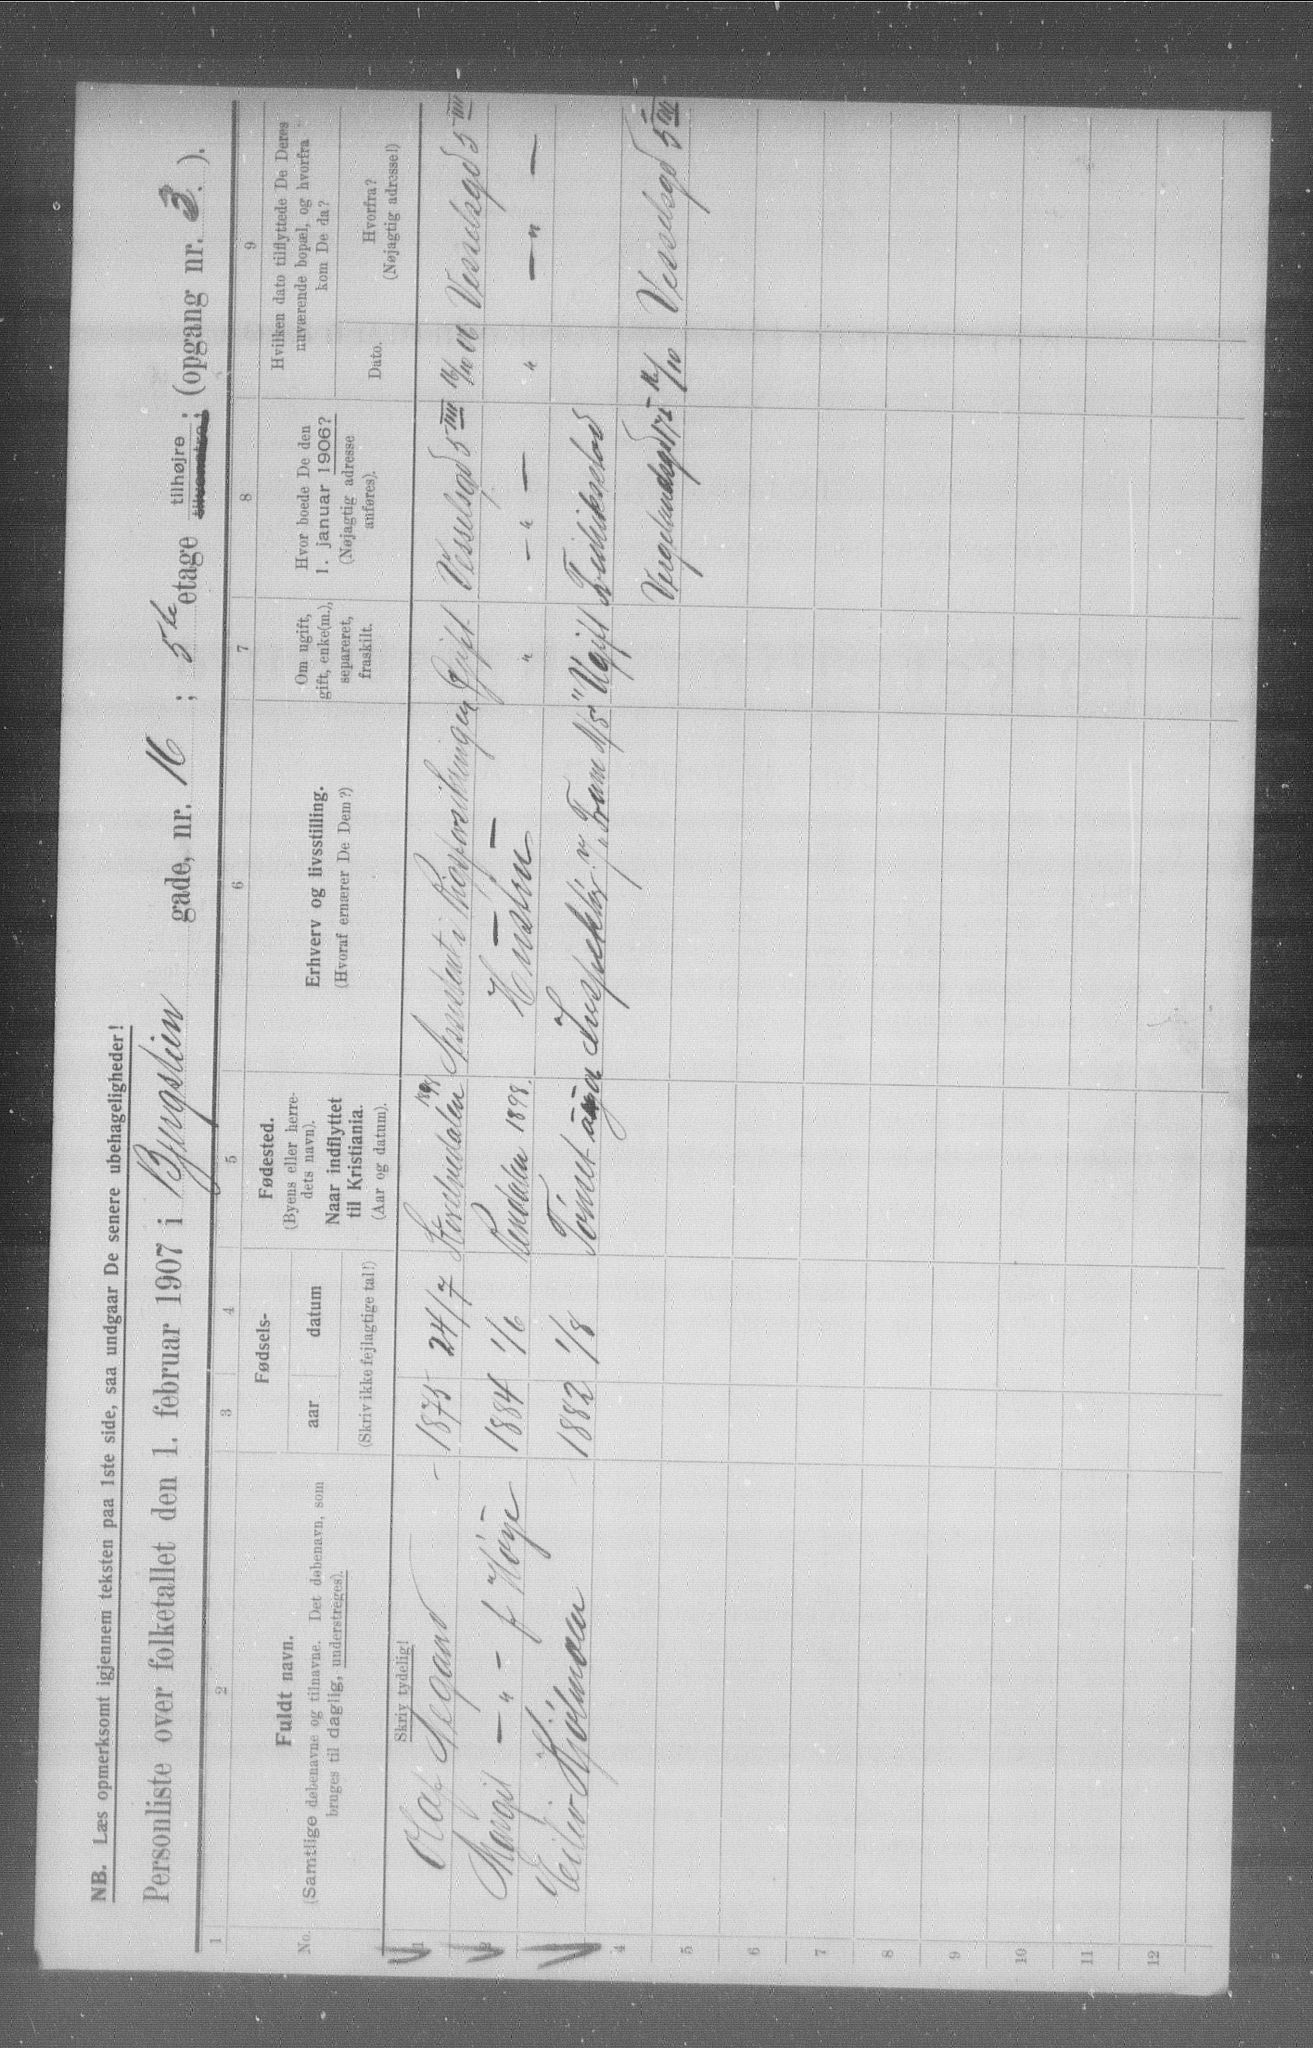 NB. Læs opmerksomt igjennem teksten paa 1ste side, saa undgaar De senere ubehageligheder!
Personliste over folketallet den 1. februar 1907 i Bjergstien gade, nr. 16 ; 5te etage tilhøjre tilvenstre ; (opgang nr. 3. ).
1 2 3 4 5 6 7 8 9
No.
Fuldt navn.
(Samtlige døbenavne og tilnavne. Det døbenavn, som
bruges til daglig, understreges).
Skriv tydelig!
Fødsels-
aar datum
(Skriv ikke fejlagtige tal!)
Fødested.
(Byens eller herre-
dets navn).
Naar indflyttet
til Kristiania.
(Aar og datum).
Erhverv og livsstilling.
(Hvoraf ernærer De Dem?)
Om ugift,
gift, enke(m.),
separeret,
fraskilt.
Hvor boede De den
1. januar 1906?
(Nøjagtig adresse
anføres).
Hvilken dato tilflyttede De Deres
nuværende bopæl, og hvorfra
kom De da?
Dato.
Hvorfra?
(Nøjagtig adresse!)
1 Olaf 1875 24/7 Assistent i Rigsforsikringen Gift Vesselsgd 5 IIII 16/10 06 Vesselsgd 5 IIII
2 Margit — " — f Höye 1884 1/6 Rendalen 1898. Hustru " — " — " — " —
3 1882 1/8 Tönset Inspektör v. "Tram A/S" Ugift Fredriksstad
4 Vesselsgd 5
5
6
7
8
9
10
11
12